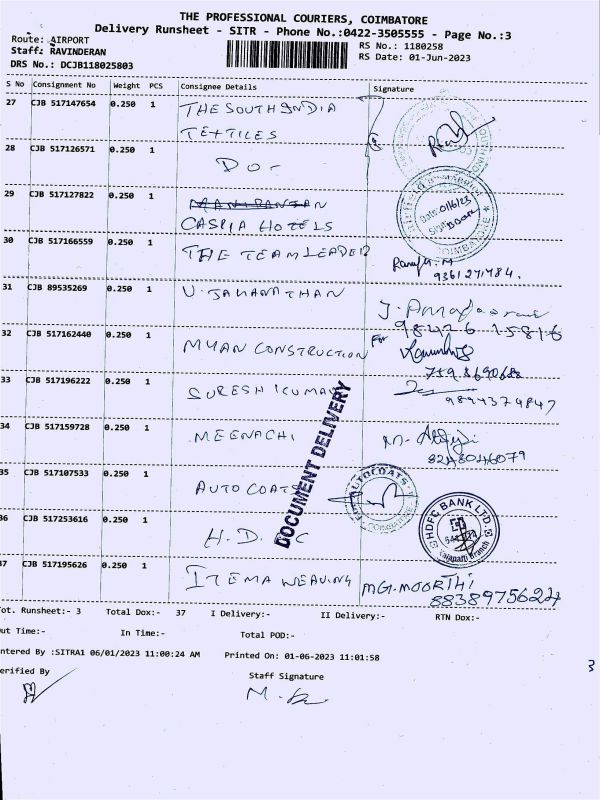 THE PROFESSIONAL COURIERS, COIMBATORE
Delivery Runsheet - SITR - Phone No.:0422-3505555 - Page No.:3
Route: AIRPORT
Staff: RAVINDERAN
RS No.: 1180258
RS Date: 01-Jun-2023
DRS No.: DCJB118025803
S No Consignment No Weight PCS Consignee Details Signature
27 CJB 517147654 0.250 1 THE SOUTH INDIA
TEXTILES
28 CJB 517126571 0.250 1 DO-
29 CJB 517127822 0.250 1
CASPIA HOTELS
Date: 01/6/23
COIMBATORE
30 CJB 517166559 0.250 1 THE TEAM LEADER
9361271484.
31 CJB 89535269 0.250 1 V. JAHANATHAN
98426 15816
32 CJB 517162440 0.250 1 MYAN CONSTRUCTION
For
33 CJB 517196222 0.250 1 SURESH KUMAR
9894374847
34 CJB 517159728 0.250 1 MEENACHI
8248046079
35 CJB 517107533 0.250 1 AUTO COATS
AUTOCOATS
COIMBATORE
DOCUMENT DELIVERY
36 CJB 517253616 0.250 1 H.D. C
HDFC BANK LTD.
Branch
37 CJB 517195626 0.250 1 ITEMA WEAVING MG. MOORTHI
8838975624
ot. Runsheet:- 3 Total Dox:- 37 I Delivery:- II Delivery:- RTN Dox:-
ut Time:- In Time:- Total POD:-
ntered By :SITRA1 06/01/2023 11:00:24 AM Printed On: 01-06-2023 11:01:58
erified By Staff Signature
3